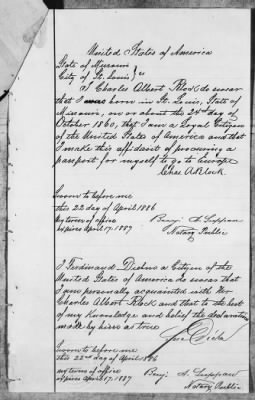 United States of America
State of Missouri
City of St. Louis } ss
I Charles Albert Block do swear
that I was born in St. Louis, State of
Missouri, on or about the 24th day of
October 1860, that I am a Loyal Citizen
of the United States of America and that
I make this affidavit of procuring a
passport for myself to go to Europe
Chas A Block
Sworn to before me
this 22 day of April 1886
my term of office
expires April 17, 1887
Benj. A.
Notary Public
I Ferdinand a Citizen of the
United States of America do swear that
I am personally acquainted with Mr.
Charles Albert Block and that to the best
of my knowledge and belief the declaration
made by him is true
Sworn to before me
this 22nd day of April 1886
my term of office
expires April 17, 1887
Benj. A.
Notary Public